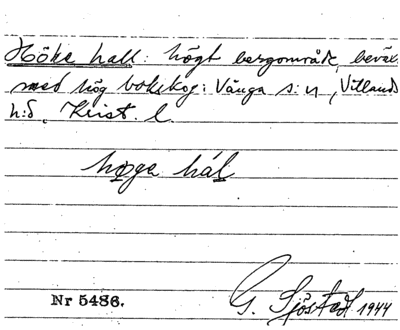 Höke hall: högt bergområde, beväx
med hög bokskog: Vånga s:n, Villands
h:d, Krist. l.
høga hál
Nr 5486.
G. Sjöstedt 1944